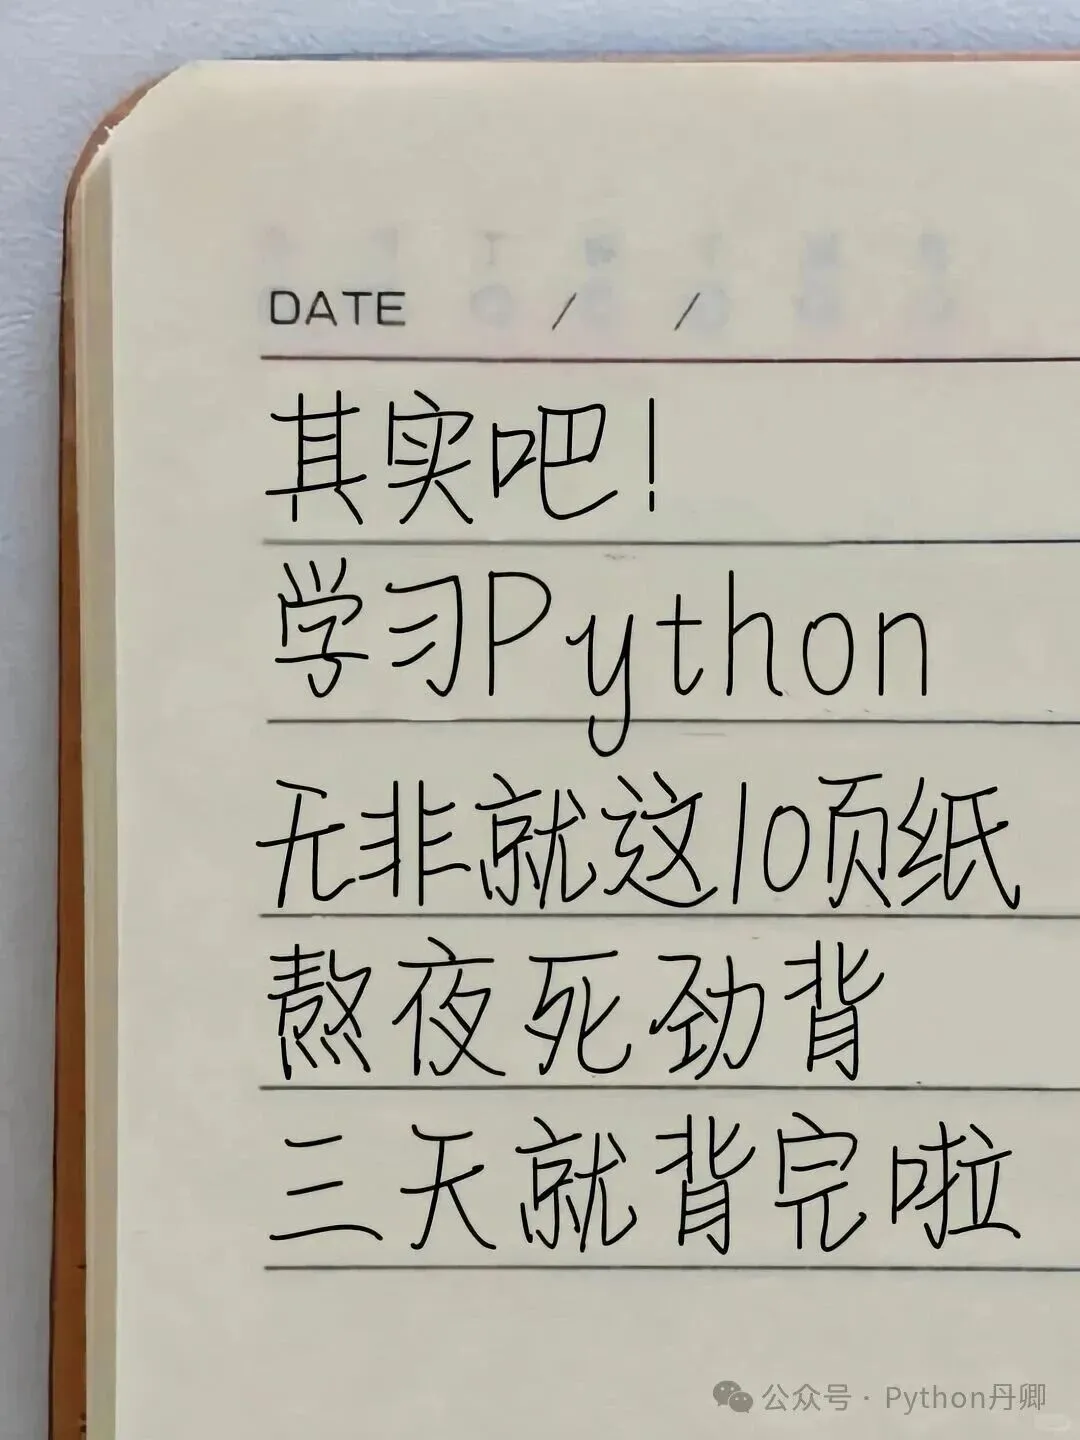 DATE / /
其实吧!
学习Python
无非就这10页纸
熬夜死劲背
三天就背完啦
公众号 · Python丹卿